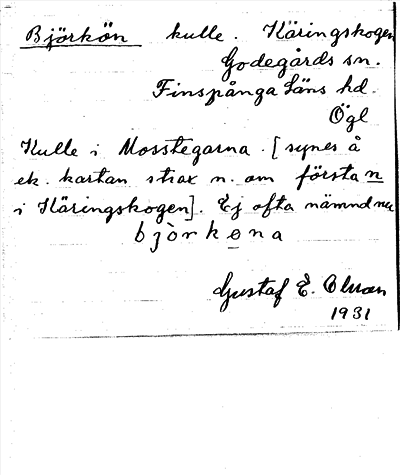 Björkön kulle. Käringskogen
Godegårds sn.
Finspånga Läns hd.
Ögl
Kulle i Mosstegarna. [synes å
ek. kartan strax n. om första n
i Käringskogen]. Ej ofta nämnd nu
björkøna
Gustaf E. Olsson
1931